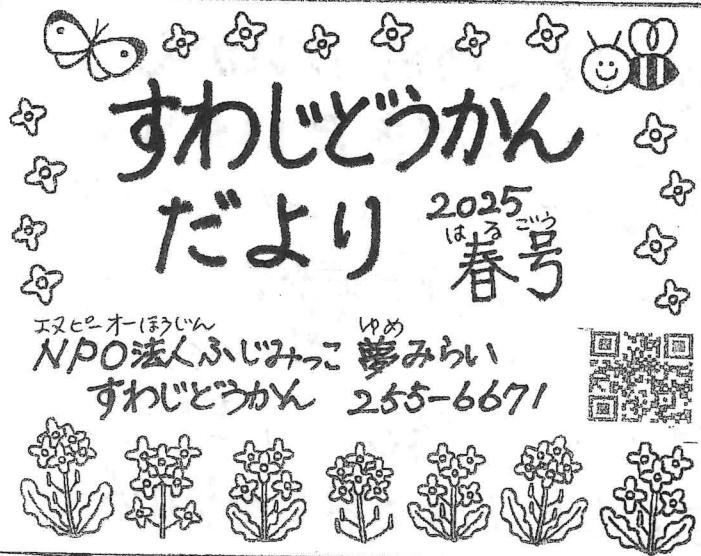 すわじどうかん
だより
2025
はるごう
春号
エヌピーオーほうじん ゆめ
NPO法人ふじみっこ 夢みらい
すわじどうかん 255-6671